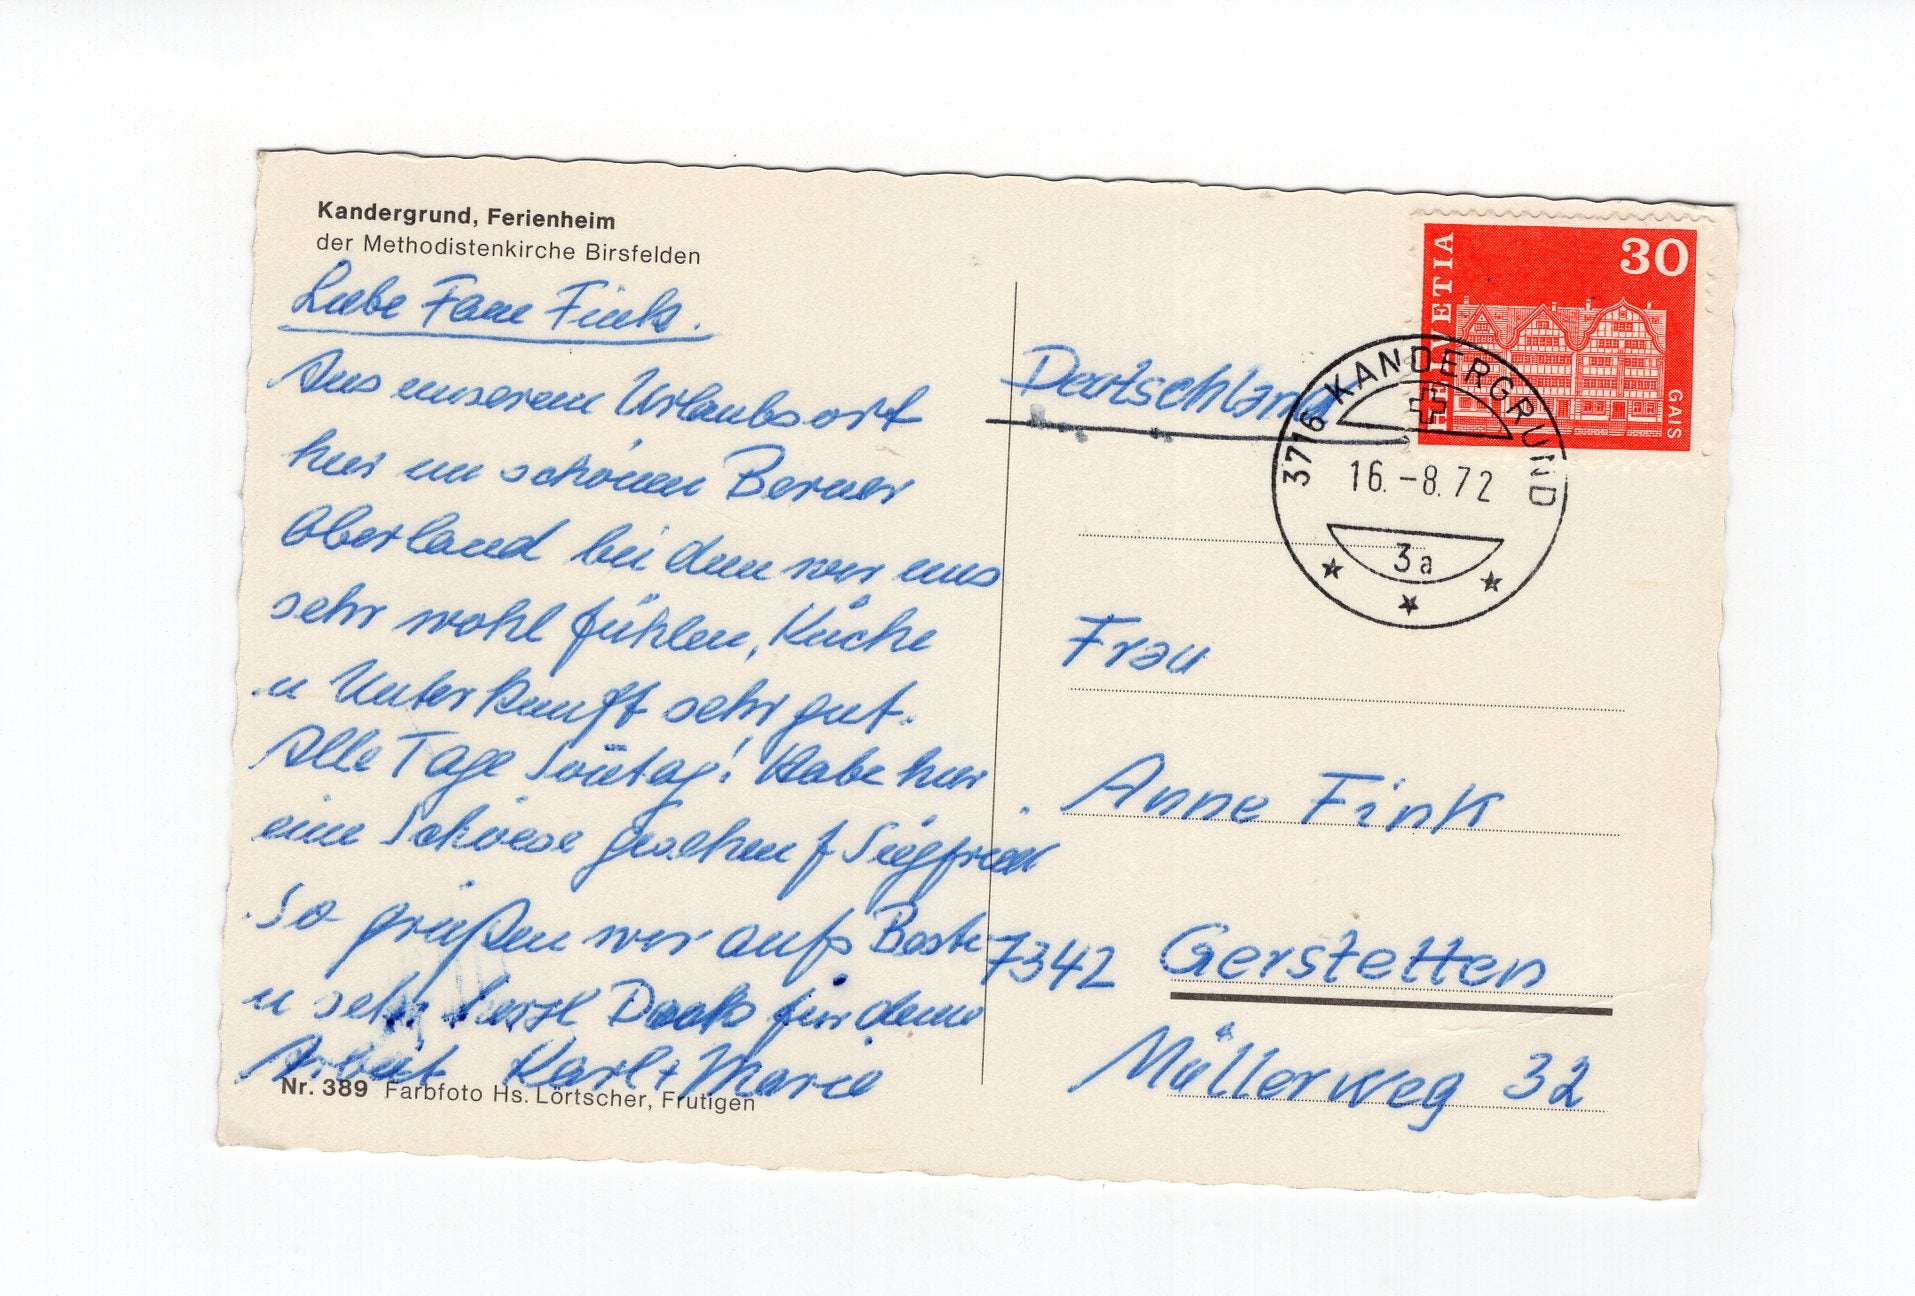 Kandergrund, Ferienheim
der Methodistenkirche Birsfelden
Liebe Frau Fink.
Aus unserem Urlaubsort
hier im schönen Berner
Oberland bei dem wir uns
sehr wohl fühlen, Küche
u Unterkunft sehr gut.
Alle Tage Soñtag! Habe hier
eine gesehen f Siegfried
So grüßen wir aufs Beste
u sehr herzl Dank für deine
Arbeit Karl + Marie
Nr. 389 Farbfoto Hs. Lörtscher, Frutigen
HELVETIA
30
GAIS
3716 KANDERGRUND
16.-8.72
3a
Deutschland
Frau
Anne Fink
7342 Gerstetten
Müllerweg 32